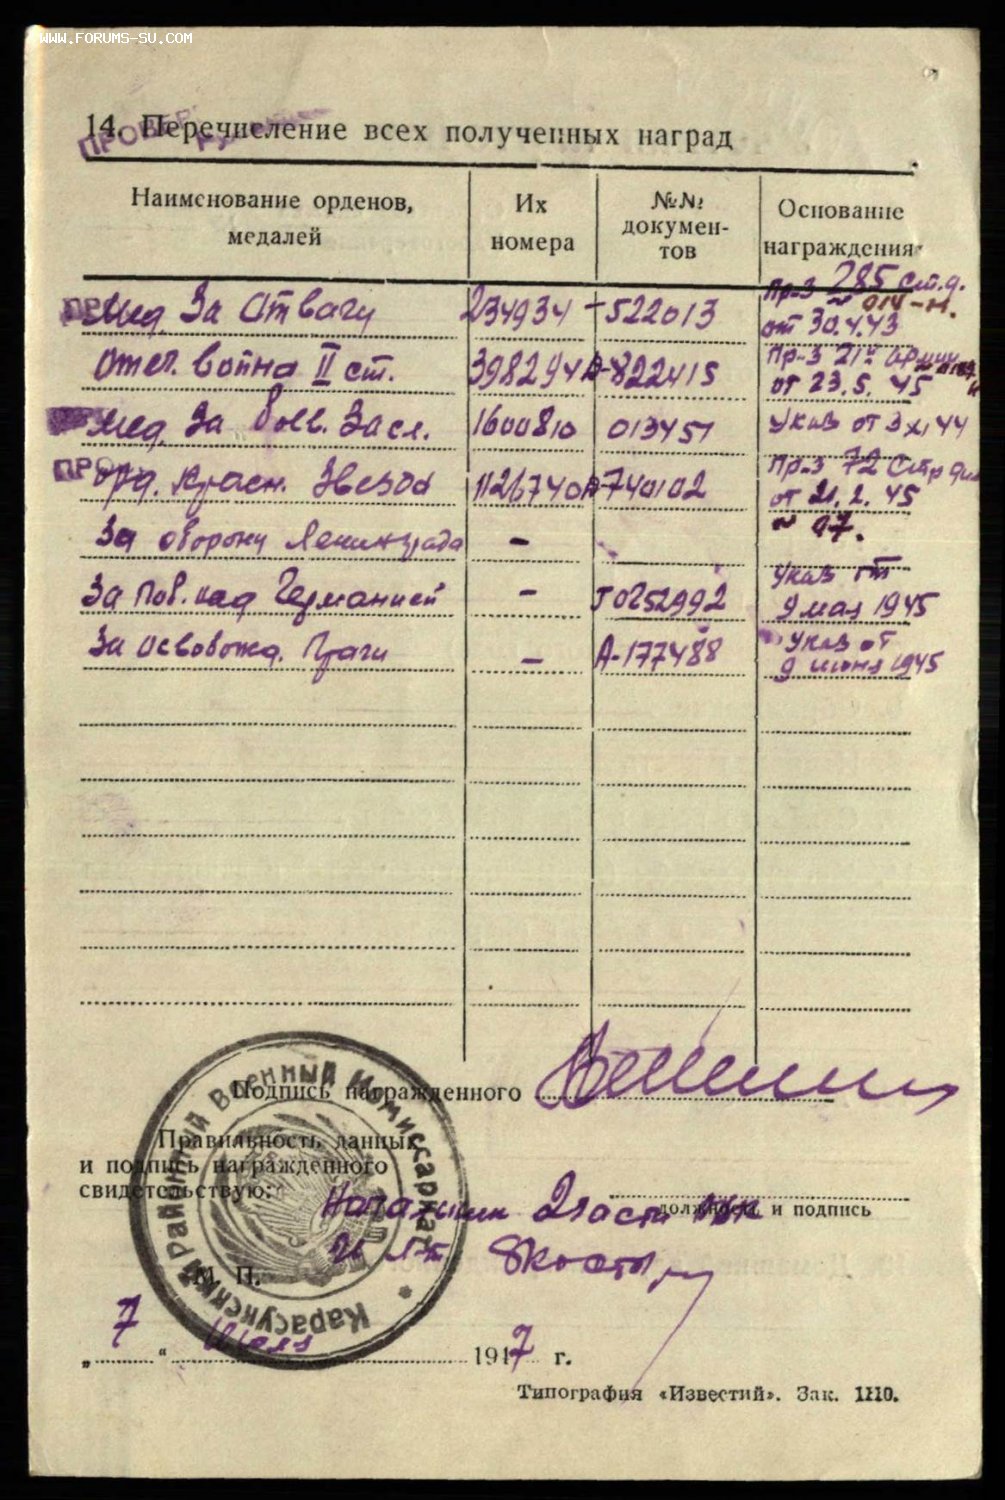 WWW.FORUMS-SU.COM
14. Перечисление всех полученных наград
Наименование орденов, медалей
Их номера
№№ документов
Основание награждения
Мед. За Отвагу 234934 -522013 Пр-з 285 ст.д. № 014-н. от 30.4.43
Отеч. Война II ст. 398294 А-822415 Пр-з 21й Армии от 23.5.45
Мед. За Боев. Засл. 1600810 013451 Указ от 3 XI 44
Орд. Красн. Звезда 1126740 А-740102 Пр-з 72 Стр див от 21.2.45 № 07.
За оборону Ленинграда –
За поб. над Германией – Т 0252992 Указ от 9 мая 1945
За освобожд. Праги – А-177488 Указ от 9 июня 1945
Подпись награжденного
Правильность данных
и подпись награжденного
свидетельствую:
Начальник 2 части
должность и подпись
М. П.
Карасукский Районный Военный Комиссариат
„7“ Июля 1947 г.
Типография «Известий». Зак. 1110.